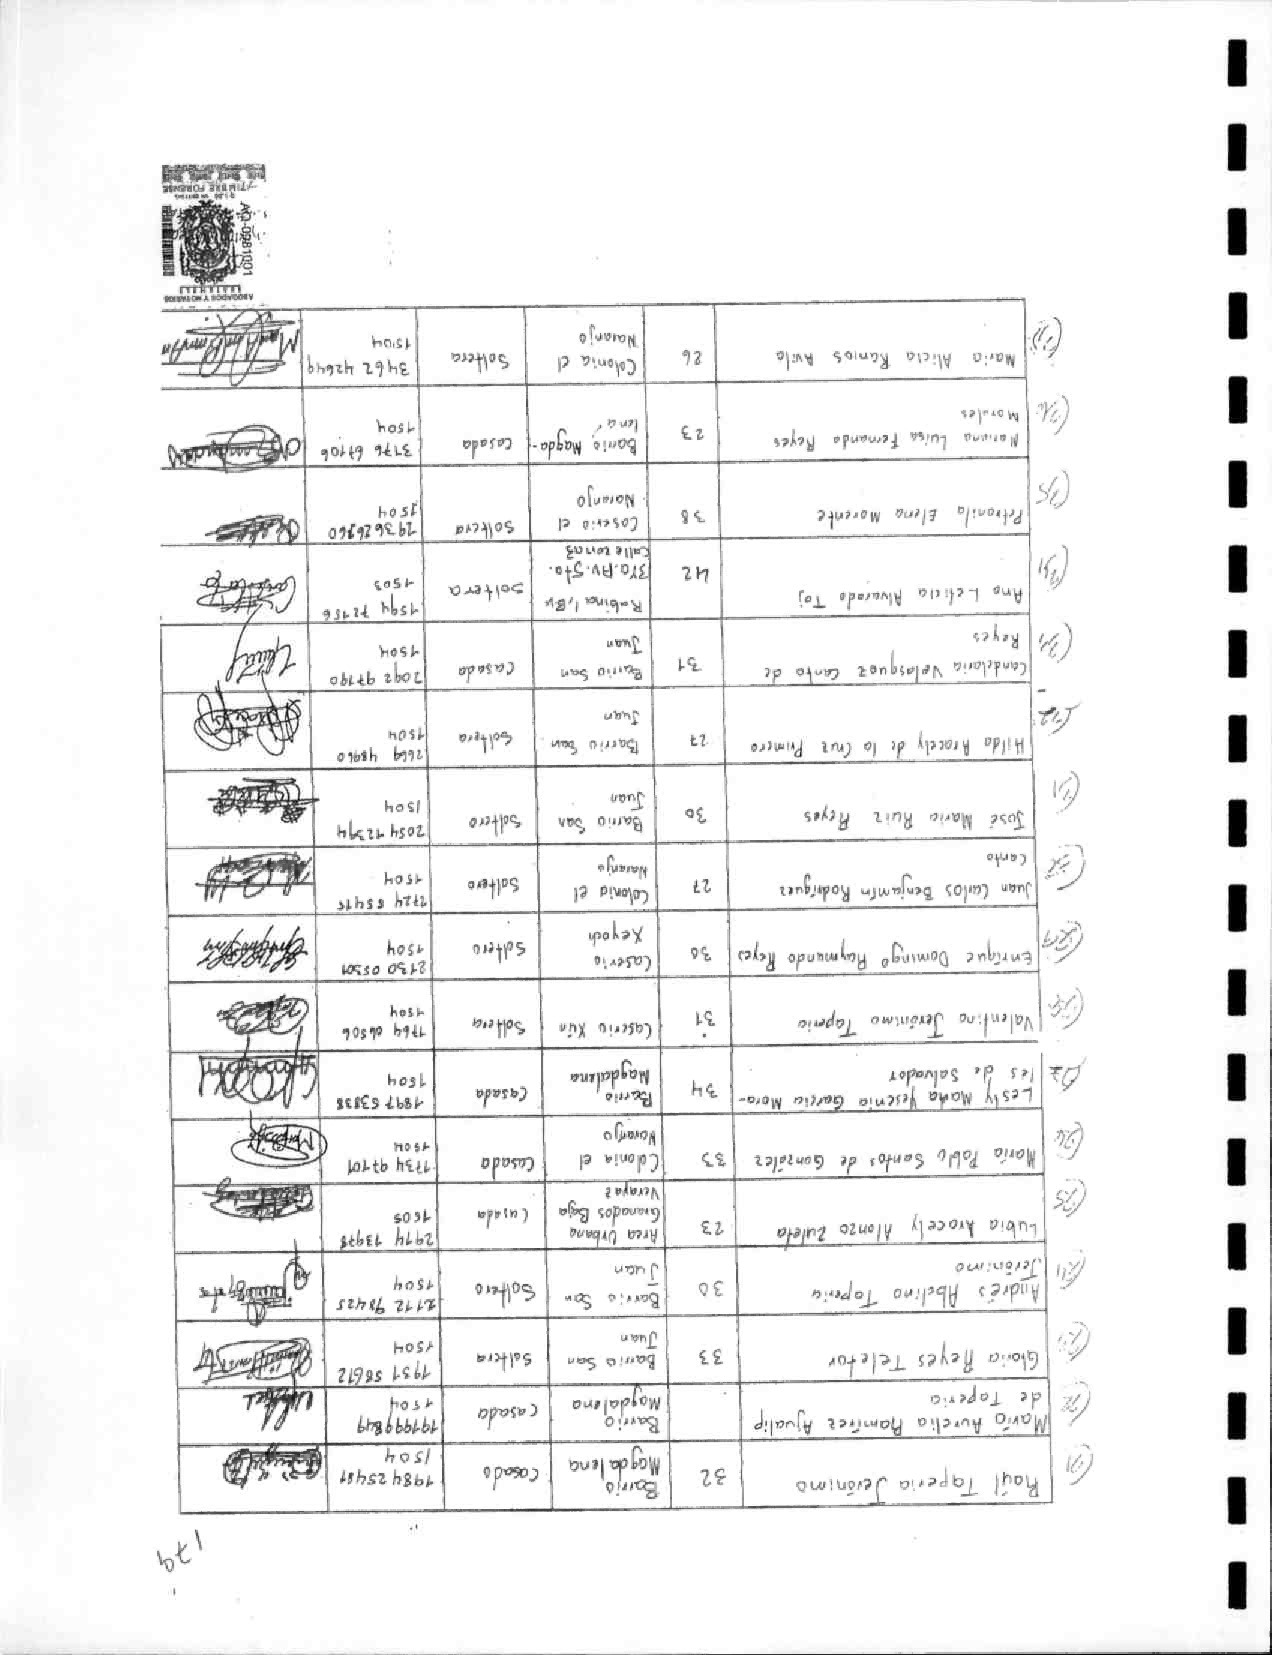 179
21 Raúl Taperia Jerónimo 32 Barrio Magdalena Casado 1984 25481 1504
22 María Aurelia Ramírez Ajualip de Taperia Barrio Magdalena Casada 1504
23 Gloria Reyes Teletor 33 Barrio San Juan Soltera 1931 56612 1504
24 Andrés Abelino Taperia Jerónimo 30 Barrio San Juan Soltero 1504
25 Lubia Aracely Alonzo Zuleta 23 Area Urbana Granados Baja Verapaz Casada 2974 13978
26 María Pablo Santos de González 33 Colonia el Naranjo Casada 1734 97101 1504
27 Lesly María Yesenia García Morales de Salvador 34 Barrio Magdalena Casada 1897 53838 1504
28 Valentina Jerónimo Taperia 31 Caserío Xún Soltera 1504
29 Enrique Domingo Raymundo Reyes 30 Caserío Xeyoch Soltero 2130 05301 1504
30 Juan Carlos Benjamín Rodríguez Canto 27 Colonia el Naranjo Soltero 2724 55415 1504
31 José Mario Ruiz Reyes 30 Barrio San Juan Soltero 2054 12394 1504
32 Hilda Aracely de la Cruz Primero 27 Barrio San Juan Soltera 2669 48960 1504
33 Candelaria Velasquez Canto de Reyes 31 Barrio San Juan Casada 2092 97190 1504
34 Ana Leticia Alvarado Toj 42 Rabinal, B.V. 3ra. Av. 5ta. Calle zona 3 Soltera 1594 72156 1503
35 Petronila Elena Morente 38 Caserío el Naranjo Soltera 1504
36 Mariana Luisa Fernando Reyes Morales 23 Barrio Magdalena Casada 3176 67106 1504
37 María Alicia Ramos Avila 26 Colonia el Naranjo Soltera 3462 42649 1504
ABOGADOS Y NOTARIOS
GUATEMALA
AO-0981001
TIMBRE FORENSE